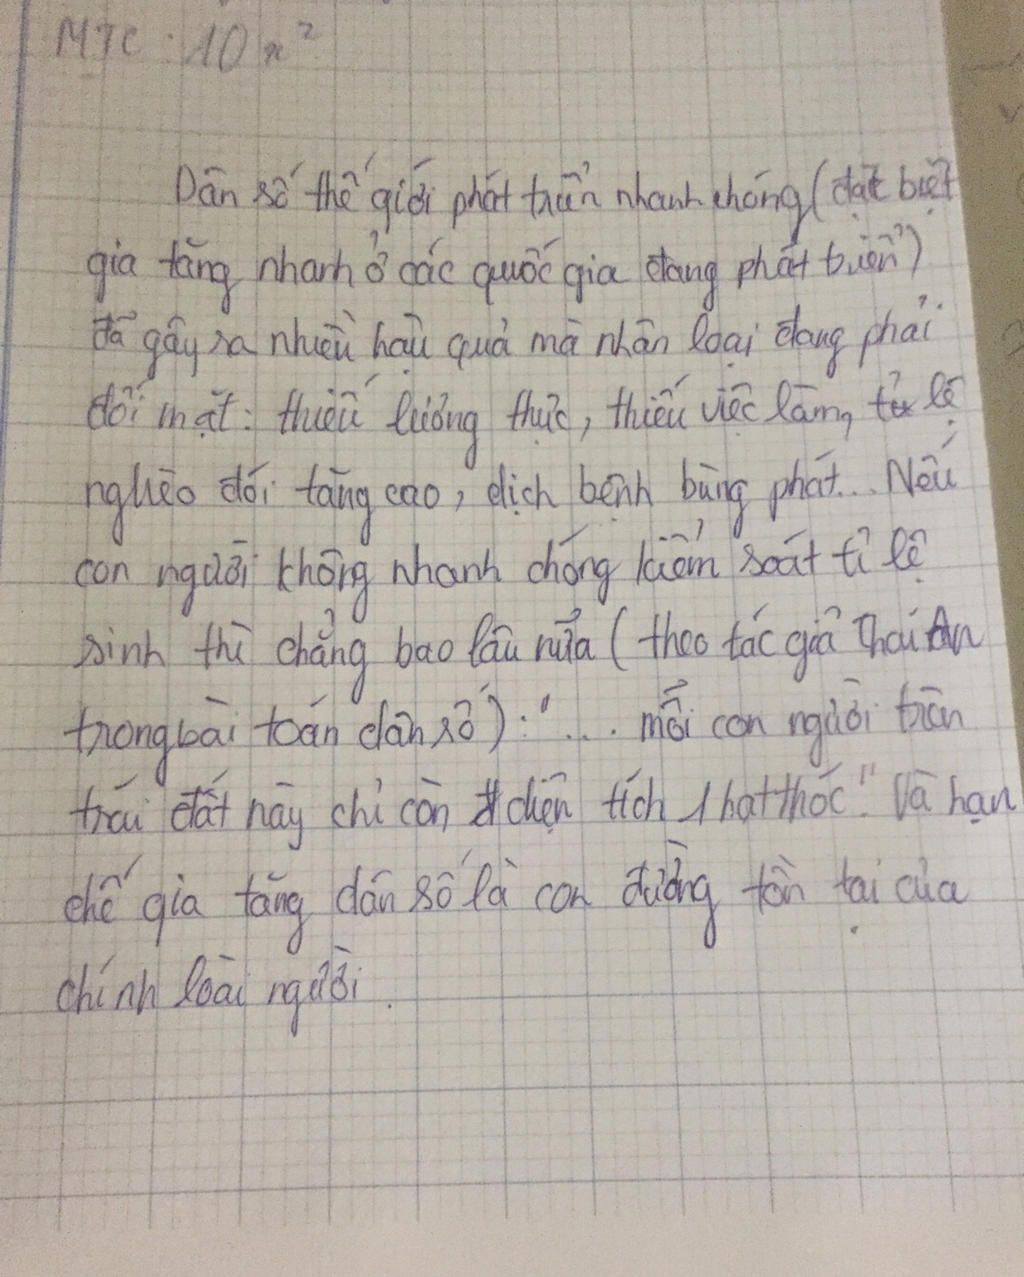 MTC : 10x²
Dân số thế giới phát triển nhanh chóng (đặt biệt
gia tăng nhanh ở các quốc gia đang phát triển)
đã gây ra nhiều hậu quả mà nhân loại đang phải
đối mặt: thiếu lương thực, thiếu việc làm, tỷ lệ
nghèo đói tăng cao, dịch bệnh bùng phát... Nếu
con người không nhanh chóng kiểm soát tỉ lệ
sinh thì chẳng bao lâu nữa (theo tác giả Thái An
trong bài toán dân số): "... mỗi con người trên
trái đất này chỉ còn diện tích 1 hạt thóc". Và hạn
chế gia tăng dân số là con đường tồn tại của
chính loài người.